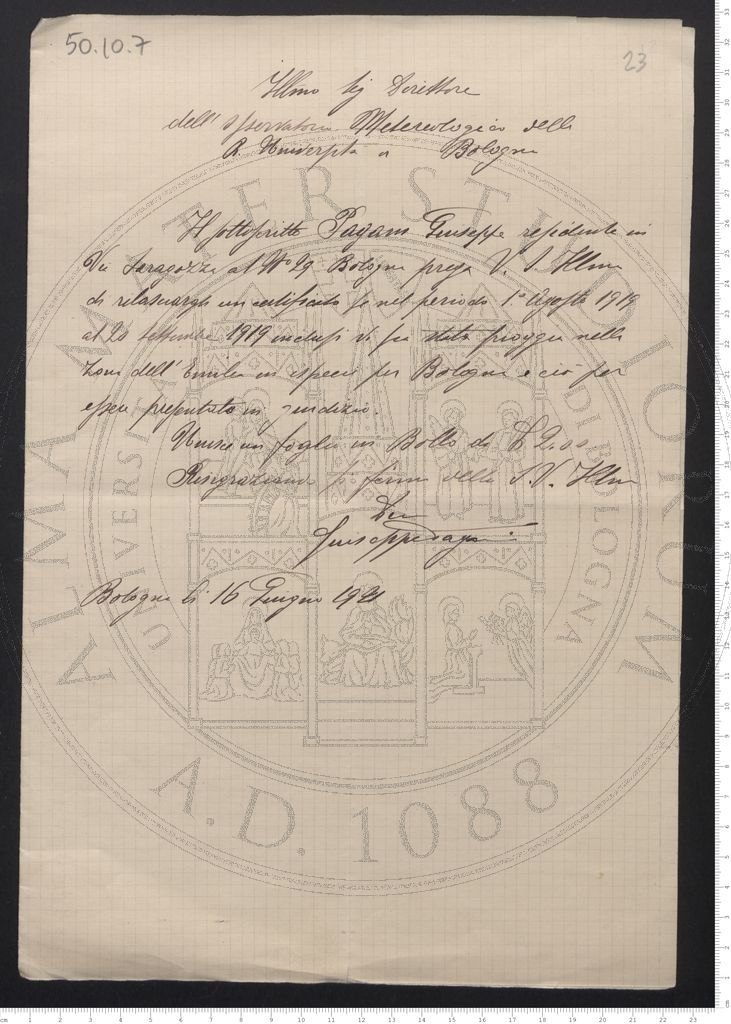 50.10.7
23
Illmo Sig Direttore
dell'Osservatorio Metereologico della
R. Università di Bologna
Il sottoscritto Pagani Giuseppe residente in
Via Saragozza al No 29 Bologna prega V. S. Illma
di rilasciargli un certificato se nel periodo 1o Agosto 1919
al 20 Settembre 1919 inclusi vi fu stata pioggia nella
Zona dell'Emilia in specie per Bologna e ciò per
essere presentato in giudizio.
Unisce un foglio in Bollo da £ 2.00
Ringraziando si firma della S. V. Illma
Dev
Giuseppe Pagani
Bologna li 16 Giugno 1921
ALMA MATER STUDIORUM
UNIVERSITÀ DI BOLOGNA
A.D. 1088